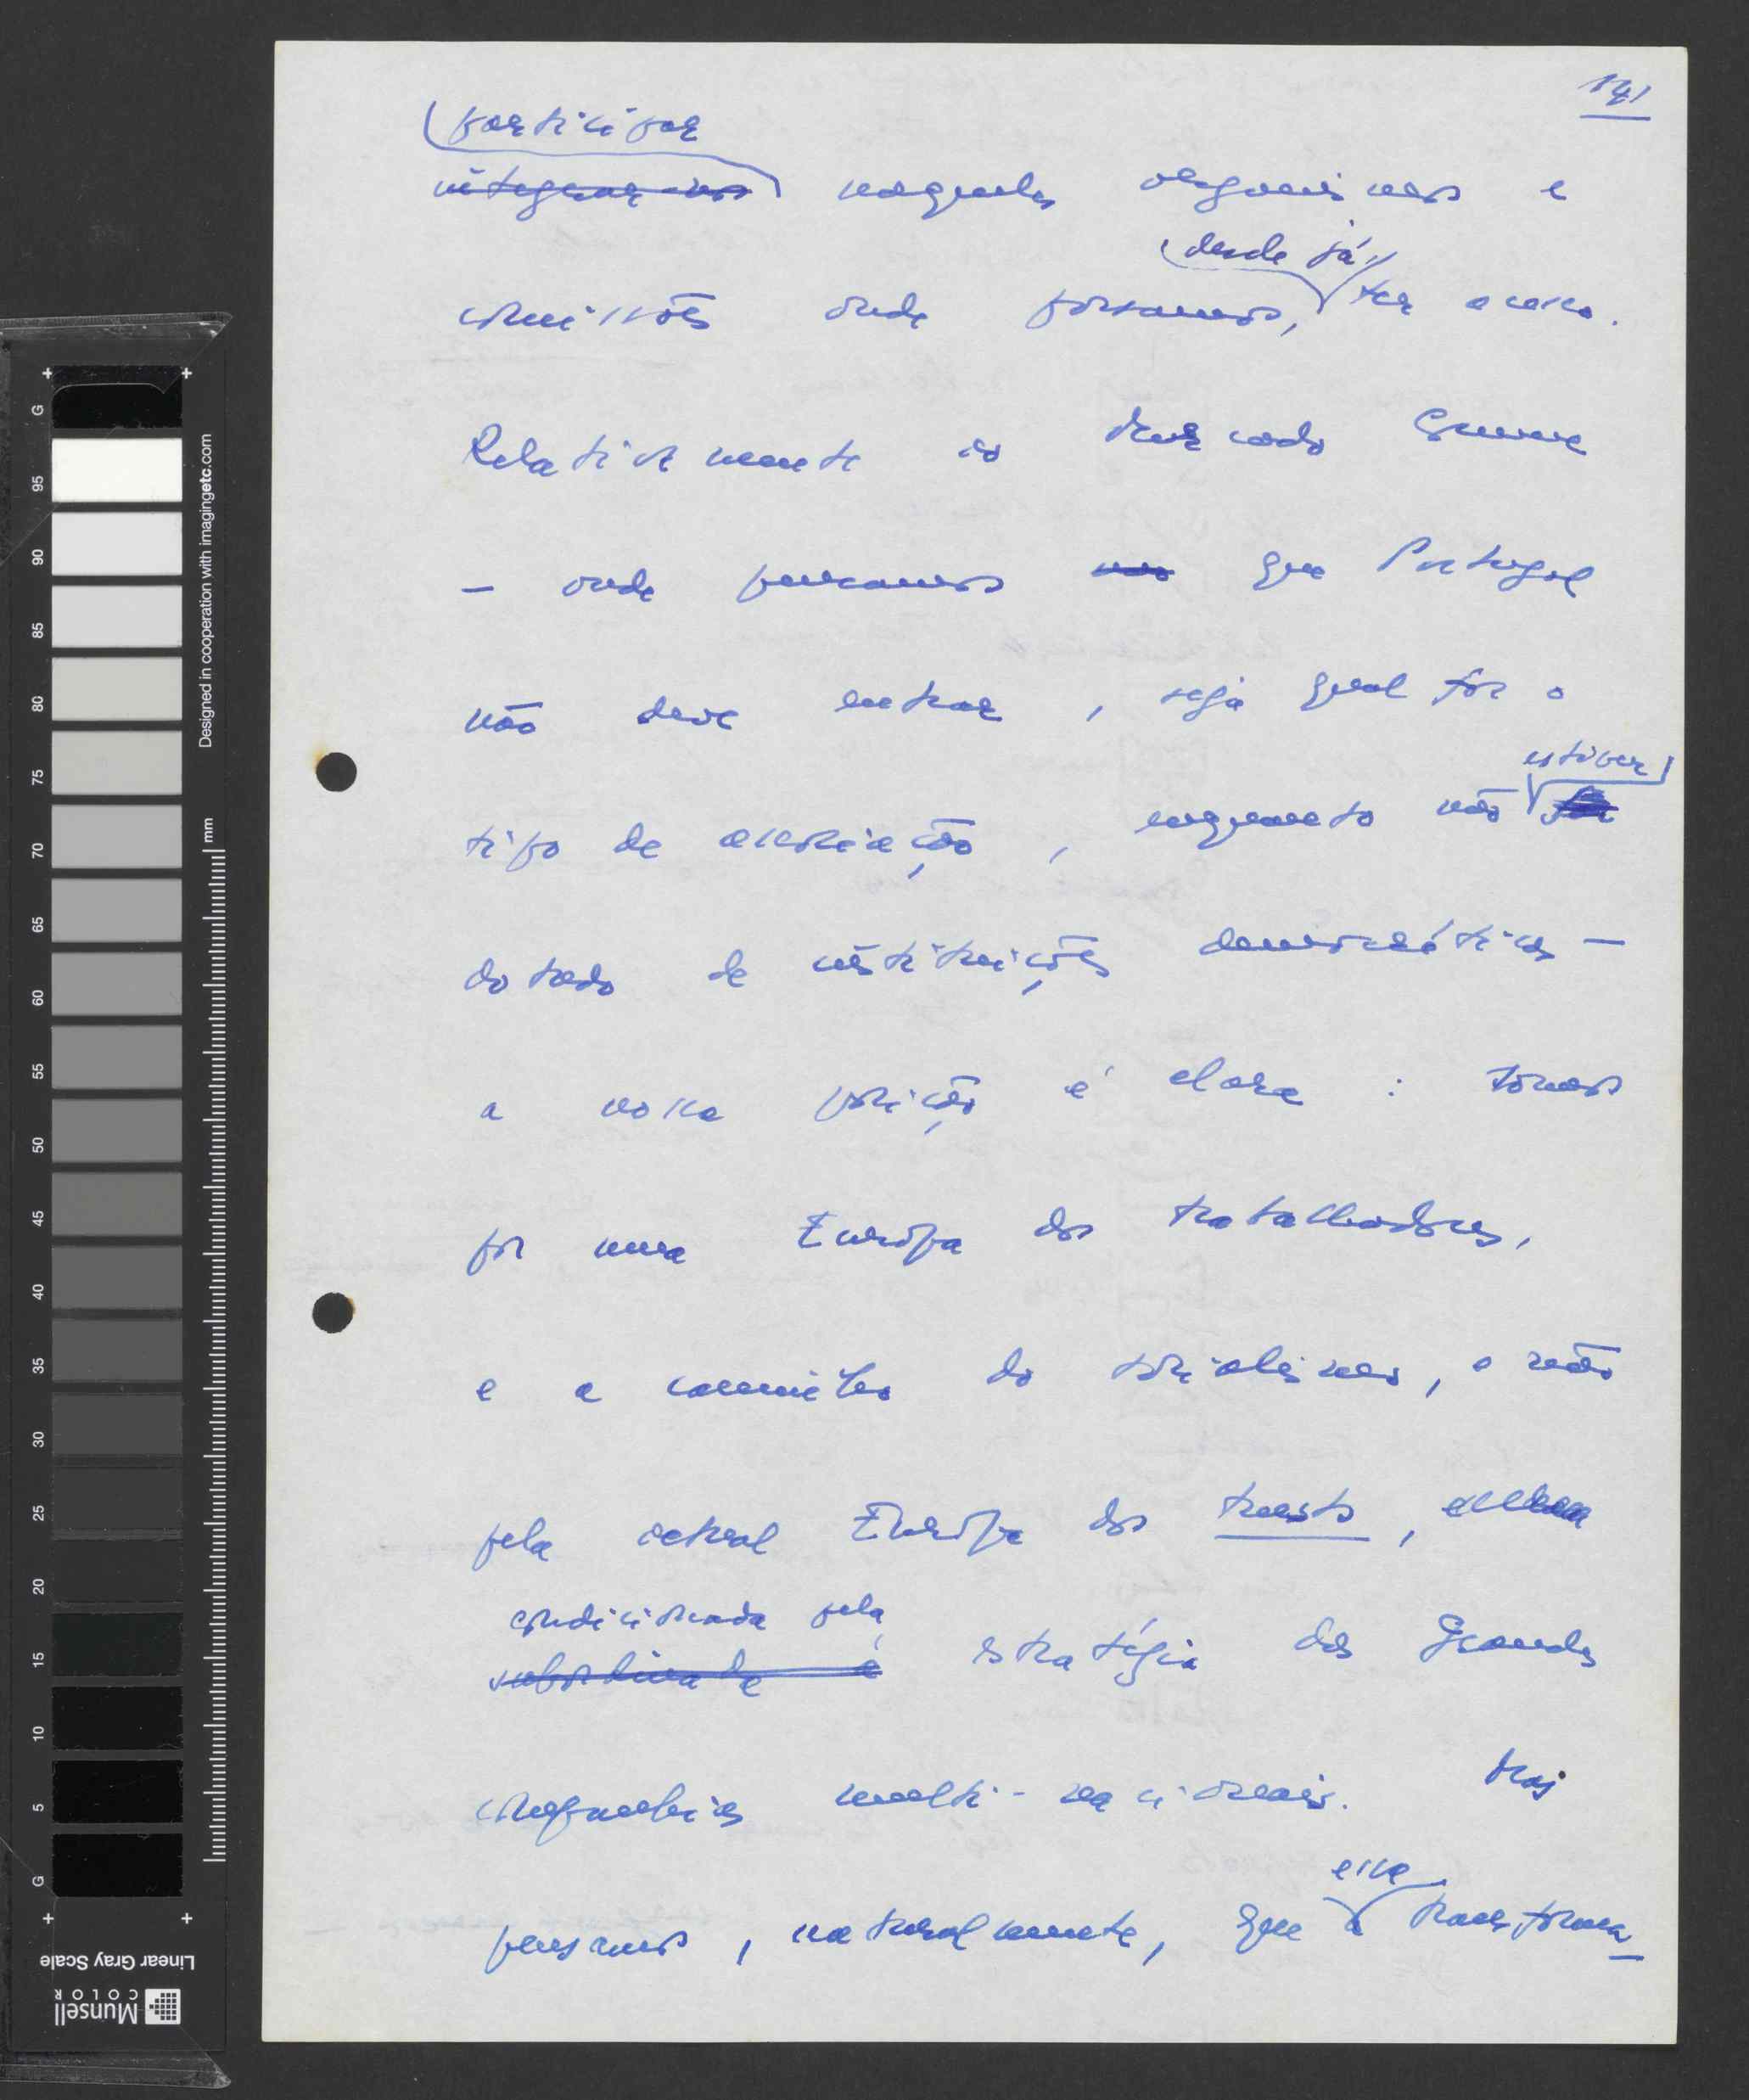 141
participar
integrar-nos naqueles organismos e
desde já,
comissões onde possamos, ter acesso.
Relativamente ao Mercado Comum
- onde pensamos não que Portugal
não deve entrar, seja qual for o
estiver
tipo de associação, enquanto não for
dotado de instituições democráticas -
a nossa posição é clara: somos
por uma Europa dos trabalhadores,
e a caminho do socialismo, e não
pela actual Europa dos trusts,
condicionada pela
subordinada à estratégia das Grandes
companhias multi-nacionais. Mas
essa
pensamos, naturalmente, que a transforma-
G 95 90 85 80 75 70 65 60 55 50 45 40 35 30 25 20 15 10 5 G
mm
Designed in cooperation with imagingetc.com
Linear Gray Scale
Munsell
COLOR